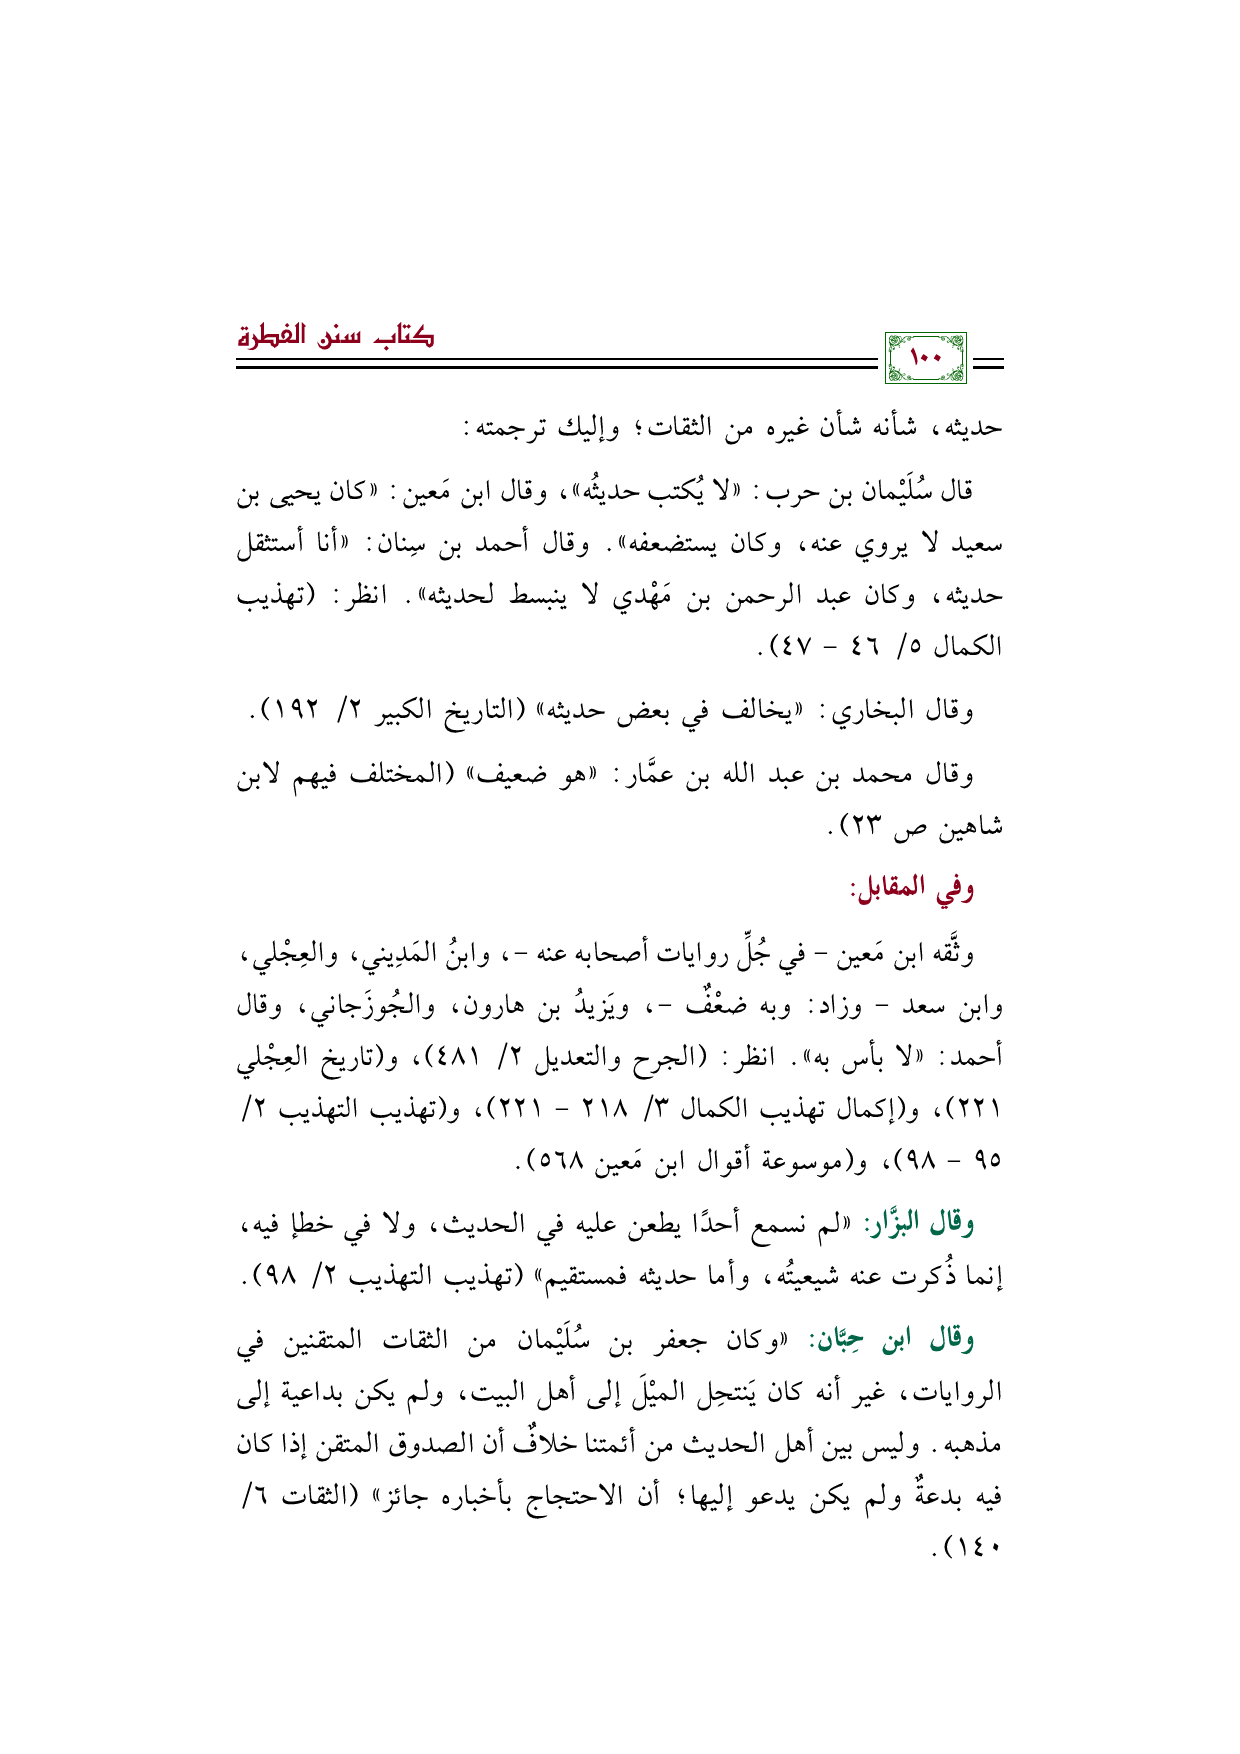 كتاب سنن الفطرة
١٠٠
حديثه، شأنه شأن غيره من الثقات؛ وإليك ترجمته:
قال سُلَيْمان بن حرب: «لا يُكتب حديثُه»، وقال ابن مَعين: «كان يحيى بن
سعيد لا يروي عنه، وكان يستضعفه». وقال أحمد بن سِنان: «أنا أستثقل
حديثه، وكان عبد الرحمن بن مَهْدي لا ينبسط لحديثه». انظر: (تهذيب
الكمال ٥/ ٤٦ – ٤٧).
وقال البخاري: «يخالف في بعض حديثه» (التاريخ الكبير ٢/ ١٩٢).
وقال محمد بن عبد الله بن عمَّار: «هو ضعيف» (المختلف فيهم لابن
شاهين ص ٢٣).
وفي المقابل:
وثَّقه ابن مَعين – في جُلِّ روايات أصحابه عنه –، وابنُ المَدِيني، والعِجْلي،
وابن سعد – وزاد: وبه ضعْفٌ –، ويَزيدُ بن هارون، والجُوزَجاني، وقال
أحمد: «لا بأس به». انظر: (الجرح والتعديل ٢/ ٤٨١)، و(تاريخ العِجْلي
٢٢١)، و(إكمال تهذيب الكمال ٣/ ٢١٨ – ٢٢١)، و(تهذيب التهذيب ٢/
٩٥ – ٩٨)، و(موسوعة أقوال ابن مَعين ٥٦٨).
وقال البزَّار: «لم نسمع أحدًا يطعن عليه في الحديث، ولا في خطإ فيه،
إنما ذُكرت عنه شيعيتُه، وأما حديثه فمستقيم» (تهذيب التهذيب ٢/ ٩٨).
وقال ابن حِبَّان: «وكان جعفر بن سُلَيْمان من الثقات المتقنين في
الروايات، غير أنه كان يَنتحِل الميْلَ إلى أهل البيت، ولم يكن بداعية إلى
مذهبه. وليس بين أهل الحديث من أئمتنا خلافٌ أن الصدوق المتقن إذا كان
فيه بدعةٌ ولم يكن يدعو إليها؛ أن الاحتجاج بأخباره جائز» (الثقات ٦/
١٤٠).